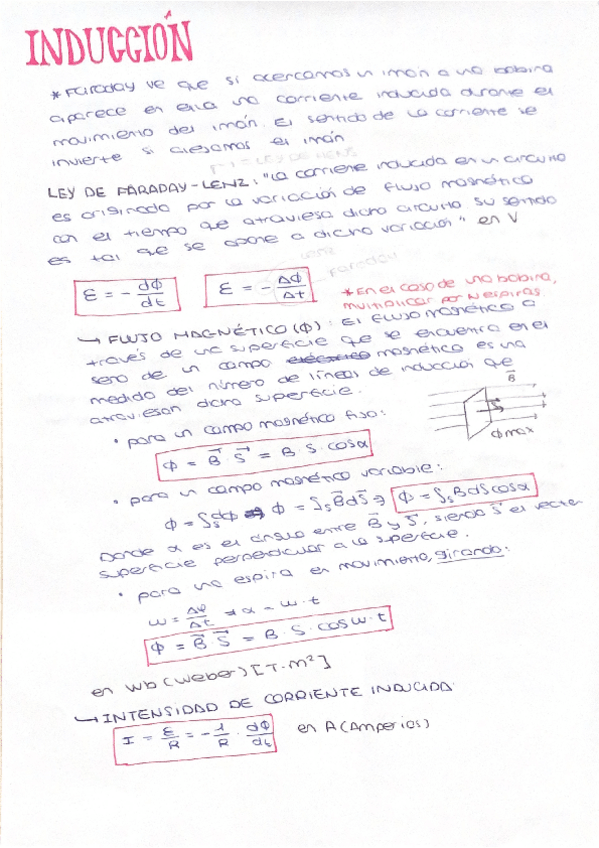 INDUCCIÓN
* Faraday ve que si acercamos un imán a una bobina
aparece en ella una corriente inducida durante el
movimiento del imán. El sentido de la corriente se
invierte si alejamos el imán
LEY DE FARADAY-LENZ: "La corriente inducida en un circuito
es originada por la variación de flujo magnético
con el tiempo que atraviesa dicho circuito. Su sentido
es tal que se opone a dicha variación" en V
ε = - dΦ/dt
ε = - ΔΦ/Δt
* En el caso de una bobina,
multiplicar por N espiras
↪ FLUJO MAGNÉTICO (Φ): El flujo magnético a
través de una superficie que se encuentra en el
seno de un campo magnético es una
medida del número de líneas de inducción que
atraviesan dicha superficie.
B⃗
S⃗
Φmax
• para un campo magnético fijo:
Φ = B⃗ · S⃗ = B · S · cosα
• para un campo magnético variable:
Φ = ∫s dΦ ⇒ Φ = ∫s B⃗dS⃗ ⇒ Φ = ∫s BdScosα
Donde α es el ángulo entre B⃗ y S⃗, siendo S⃗ el vector
superficie perpendicular a la superficie.
• para una espira en movimiento, girando:
ω = Δφ/Δt → α = ω · t
Φ = B⃗ · S⃗ = B · S · cosω · t
en Wb (Weber) [T·m²]
↪ INTENSIDAD DE CORRIENTE INDUCIDA
I = ε/R = - 1/R · dΦ/dt en A (Amperios)